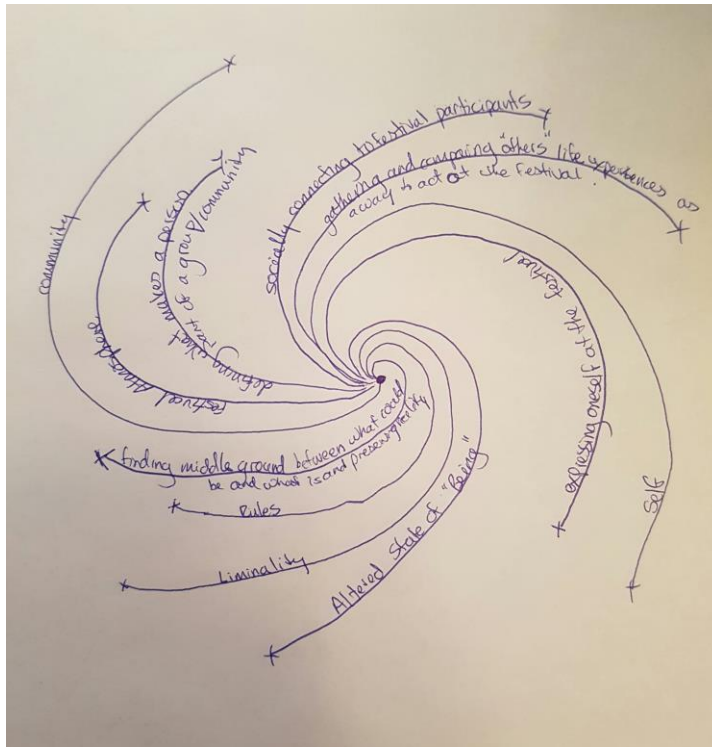 community
festival Atmosphere
defining what makes a person
part of a group/community
socially connecting to festival participants
gathering and comparing "others" life experiences as
a way to act at the festival.
expressing oneself at the festival
Self
finding middle ground between what could
be and what is and preserving reality
Rules
Liminality
Altered State of "Being"